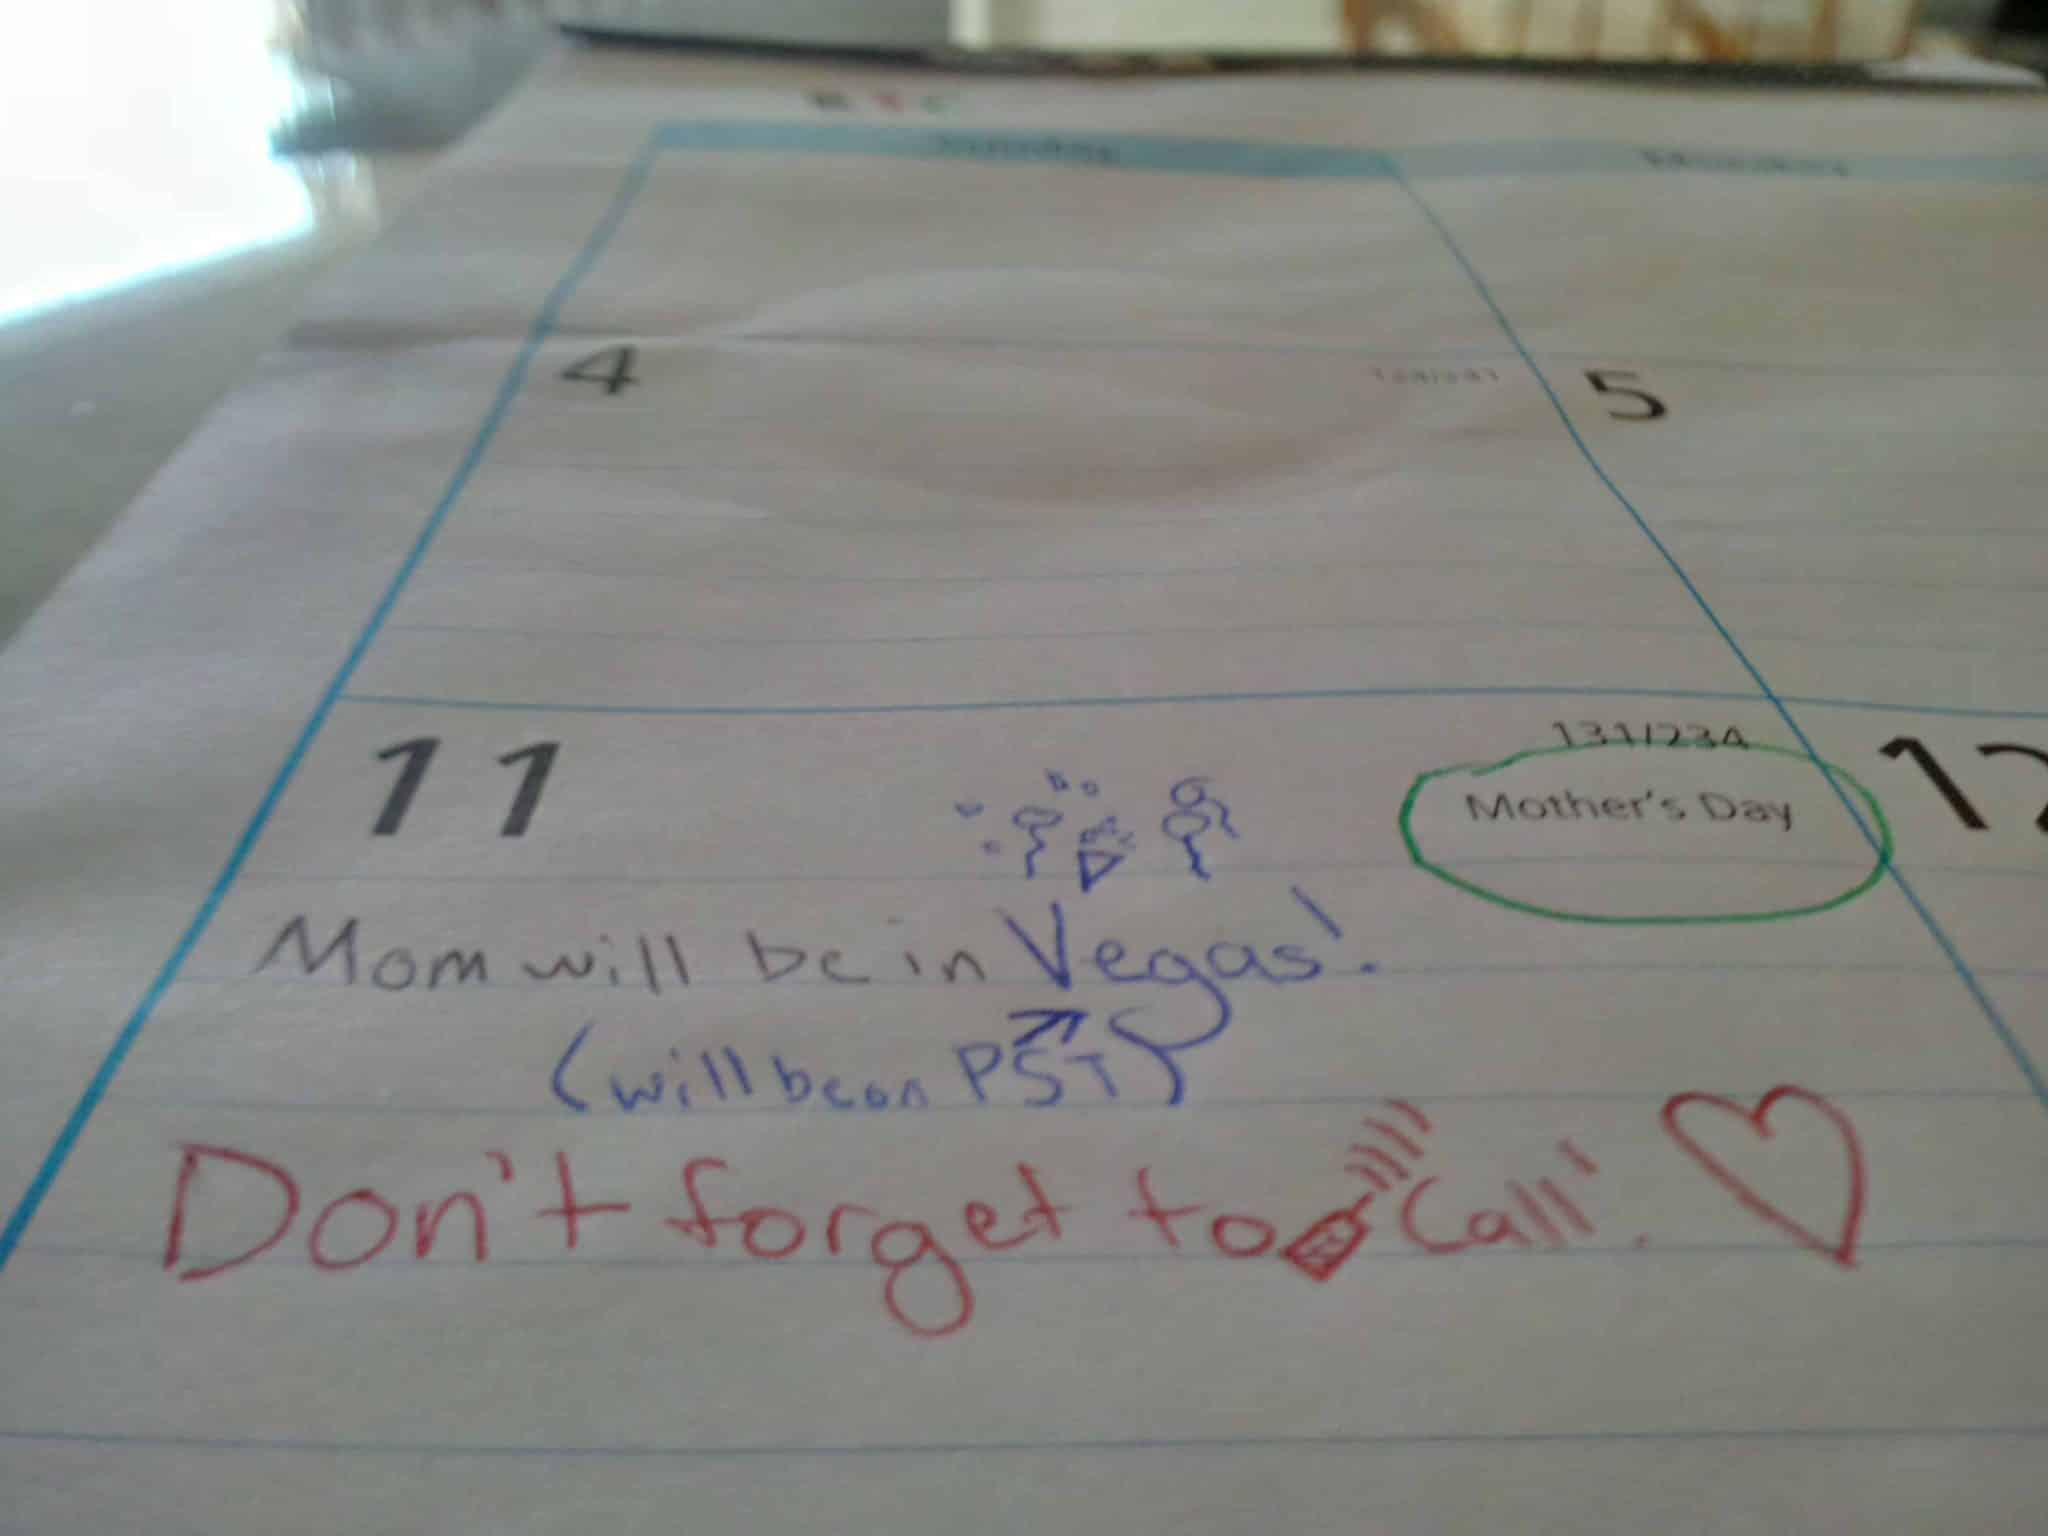 Sunday Monday
4 5
11 131/234 12
Mother's Day
Mom will be in Vegas!
(will be on PST)
Don't forget to Call!